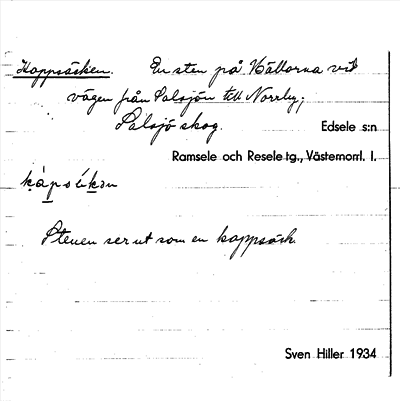 Kappsäcken. En sten på Hällorna vid
vägen från Salsjön till Norrby;
Salsjö skog. Edsele s:n
Ramsele och Resele tg., Västernorrl. l.
kápsä́kən
Stenen ser ut som en kappsäck.
Sven Hiller 1934